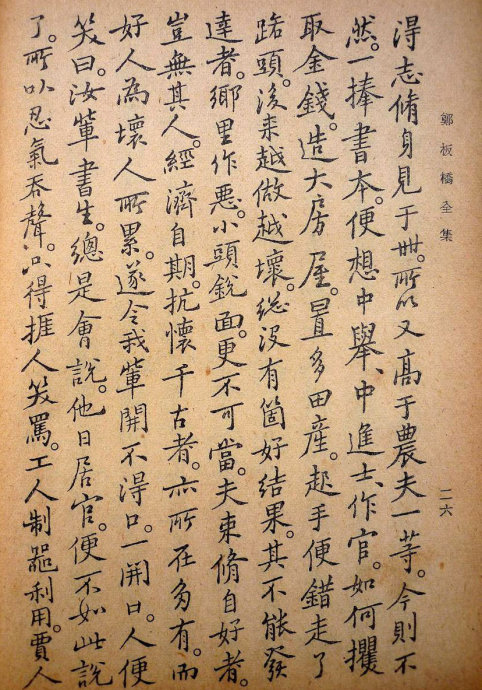 鄭板橋全集
二六
得志脩身見于世。所以又高于農夫一等。今則不
然。一捧書本。便想中舉、中進士、作官。如何攫
取金錢。造大房屋。置多田產。起手便錯走了
路頭。後来越做越壞。総沒有箇好結果。其不能發
達者。鄉里作惡。小頭銳面。更不可當。夫束脩自好者。
豈無其人。經濟自期。抗懷千古者。亦所在多有。而
好人為壞人所累。遂令我輩開不得口。一開口。人便
笑曰。汝輩書生。總是會說。他日居官。便不如此說
了。所以忍氣吞聲。只得捱人笑罵。工人制器利用。賈人